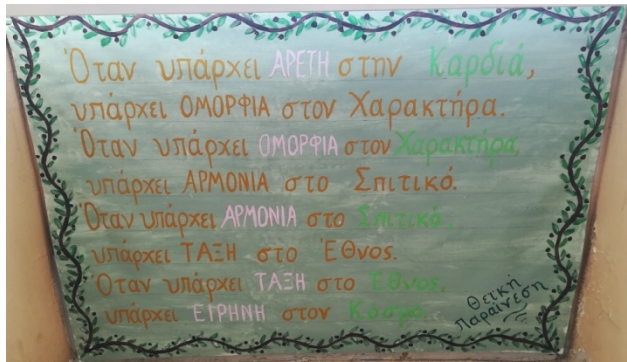 Όταν υπάρχει ΑΡΕΤΗ στην Καρδιά,
υπάρχει ΟΜΟΡΦΙΑ στον Χαρακτήρα.
Όταν υπάρχει ΟΜΟΡΦΙΑ στον Χαρακτήρα,
υπάρχει ΑΡΜΟΝΙΑ στο Σπιτικό.
Όταν υπάρχει ΑΡΜΟΝΙΑ στο Σπιτικό,
υπάρχει ΤΑΞΗ στο Έθνος.
Όταν υπάρχει ΤΑΞΗ στο Έθνος,
υπάρχει ΕΙΡΗΝΗ στον Κόσμο.
Θεϊκή
παραίνεση